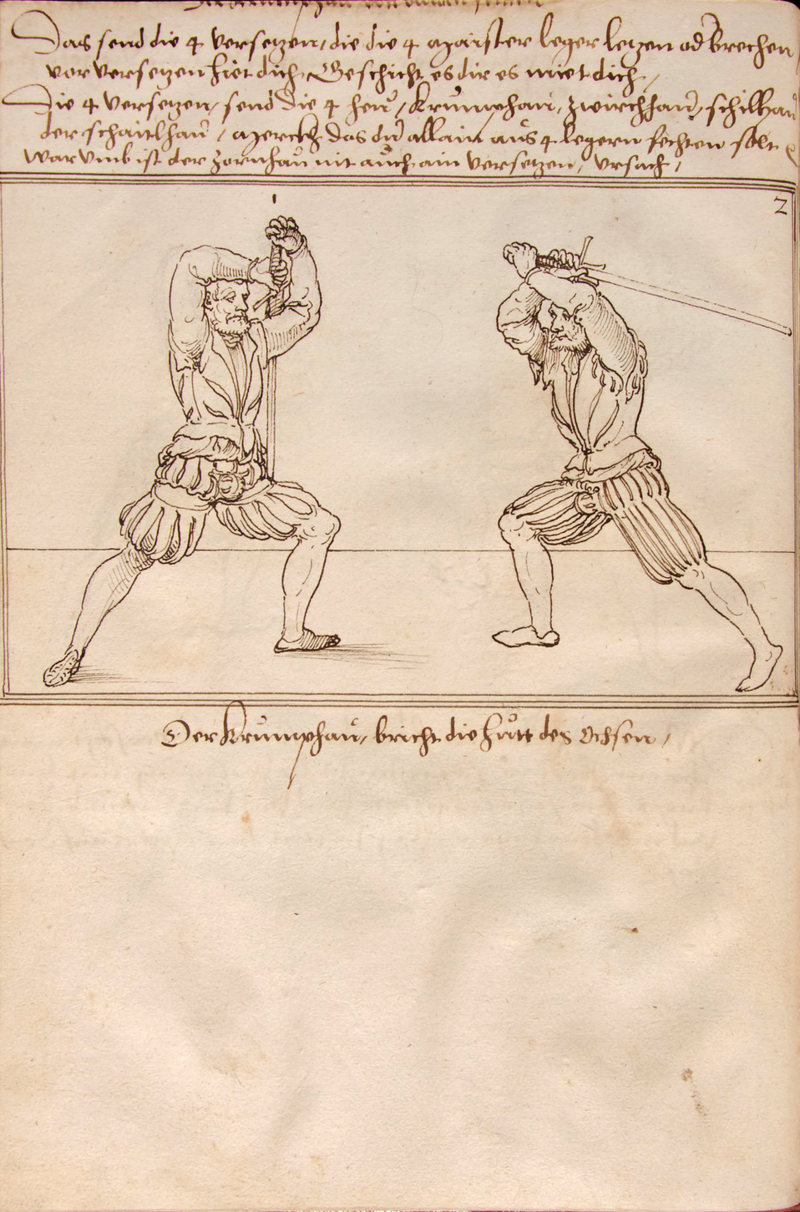 Das send die 4 versetzen, die die 4 maister leger letzen od brechen,
vor versetzen hiet dich, Geschicht es dir es miet dich,
Die 4 versetzen, send die 4 heu, krumphau, zwirchhau, schilhau
der schaitlhau, merckh das du allain aus 4 legern fechten solt
warumb ist der zornhau nit auch ain versetzen, ursach,
2
Der krumphau, bricht die hutt des Ochsen,